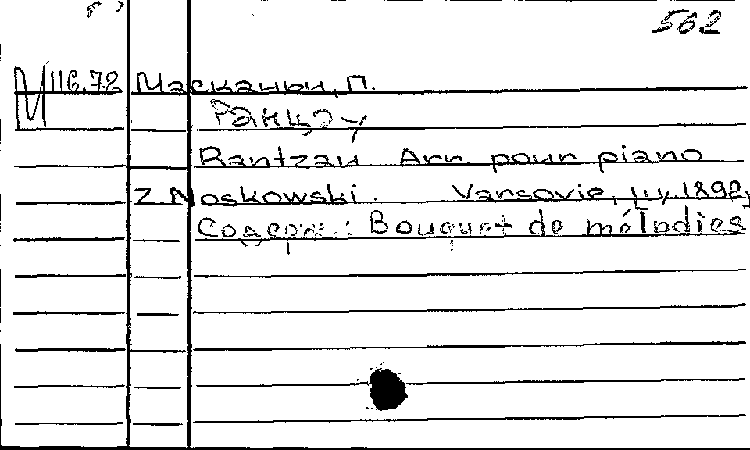 562
М 116.72 Масканьи, П.
Ранцау
Rantzau Arr. pour piano
Z Noskowski. Varsovie, 1892,
Содерж.: Bouquet de mélodies